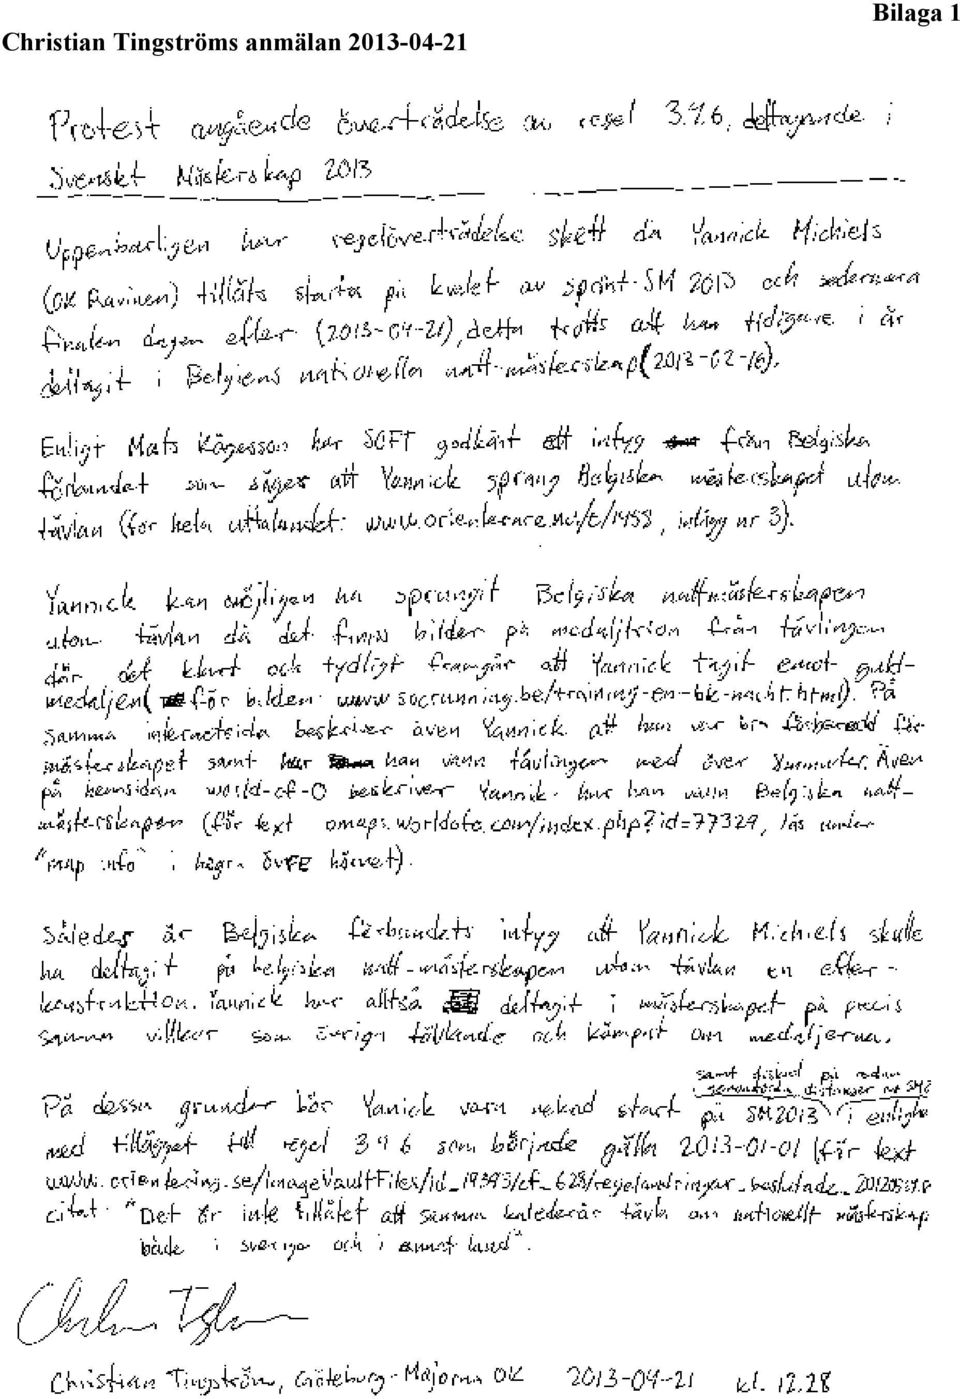 Bilaga 1
Christian Tingströms anmälan 2013-04-21
Protest angående överträdelse av regel 3.9.6, deltagande i
Svenskt Mästerskap 2013
Uppenbarligen har regelöverträdelse skett då Yannick Michiels
(OK Ravinen) tillåts starta på kvalet av sprint-SM 2013 och sedermera
finalen dagen efter (2013-04-21), detta trotts att han tidigare i år
deltagit i Belgiens nationella natt-mästerskap (2013-02-16).
Enligt Mats Kågesson har SOFT godkänt ett intyg från Belgiska
förbundet som säger att Yannick sprang Belgiska mästerskapet utom
tävlan (för hela uttalandet: www.orienterare.nu/t/1458, inlägg nr 3).
Yannick kan omöjligen ha sprungit Belgiska nattmästerskapen
utom tävlan då det finns bilder på medaljtrion från tävlingen
där det klart och tydligt framgår att Yannick tagit emot guld-
medaljen (för bilden: www.socrunning.be/training-en-bk-nacht.html). På
samma internetsida beskriver även Yannick att han var bra förberedd för
mästerskapet samt han vann tävlingen med över 8 minuter. Även
på hemsidan world-of-O beskriver Yannik hur han vann Belgiska natt-
mästerskapen (för text omaps.worldofo.com/index.php?id=77324, läs under
"map info" i högra övre hörnet).
Således är Belgiska förbundets intyg att Yannick Michiels skulle
ha deltagit på belgiska natt-mästerskapen utom tävlan en efter-
konstruktion. Yannick har alltså deltagit i mästerskapet på precis
samma villkor som övriga tävlande och kämpat om medaljerna.
samt diskad på redan
genomförda distanser av SM
På dessa grunder bör Yanick vara nekad start på SM2013 i enlighet
med tillägget till regel 3 9 6 som började gälla 2013-01-01 (för text
www.orientering.se/ImageVaultFiles/id_19393/cf_628/regelandringar_beslutade_
citat: "Det är inte tillåtet att samma kalenderår tävla om nationellt mästerskap
både i sverige och i annat land".
Christian Tingström, Göteborg-Majorna OK 2013-04-21 kl. 12.28